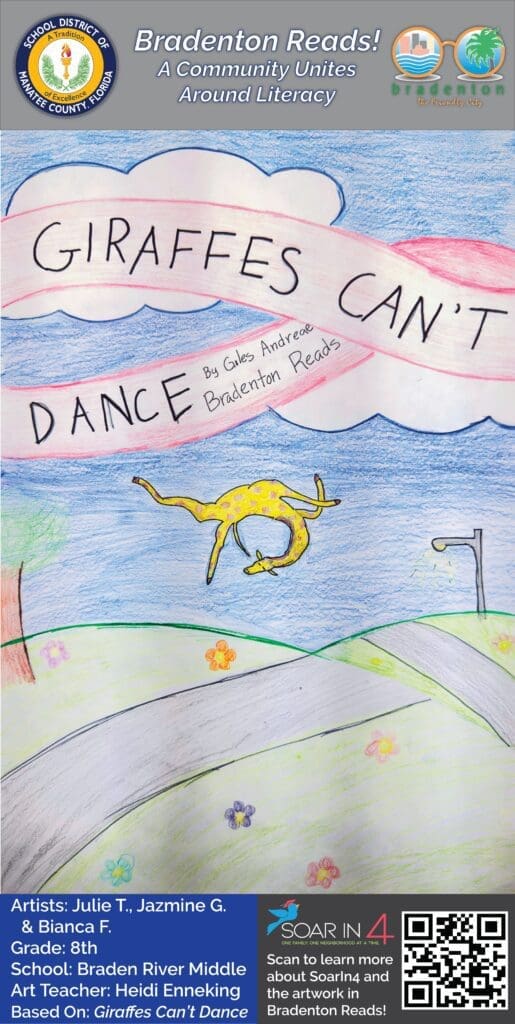 SCHOOL DISTRICT OF
MANATEE COUNTY, FLORIDA
A Tradition
of Excellence
Bradenton Reads!
A Community Unites
Around Literacy
bradenton
the Friendly City
GIRAFFES CAN'T
DANCE
By Giles Andreae
Bradenton Reads
Artists: Julie T., Jazmine G.
& Bianca F.
Grade: 8th
School: Braden River Middle
Art Teacher: Heidi Enneking
Based On: Giraffes Can't Dance
SOAR IN 4
ONE FAMILY. ONE NEIGHBORHOOD AT A TIME.
Scan to learn more
about SoarIn4 and
the artwork in
Bradenton Reads!